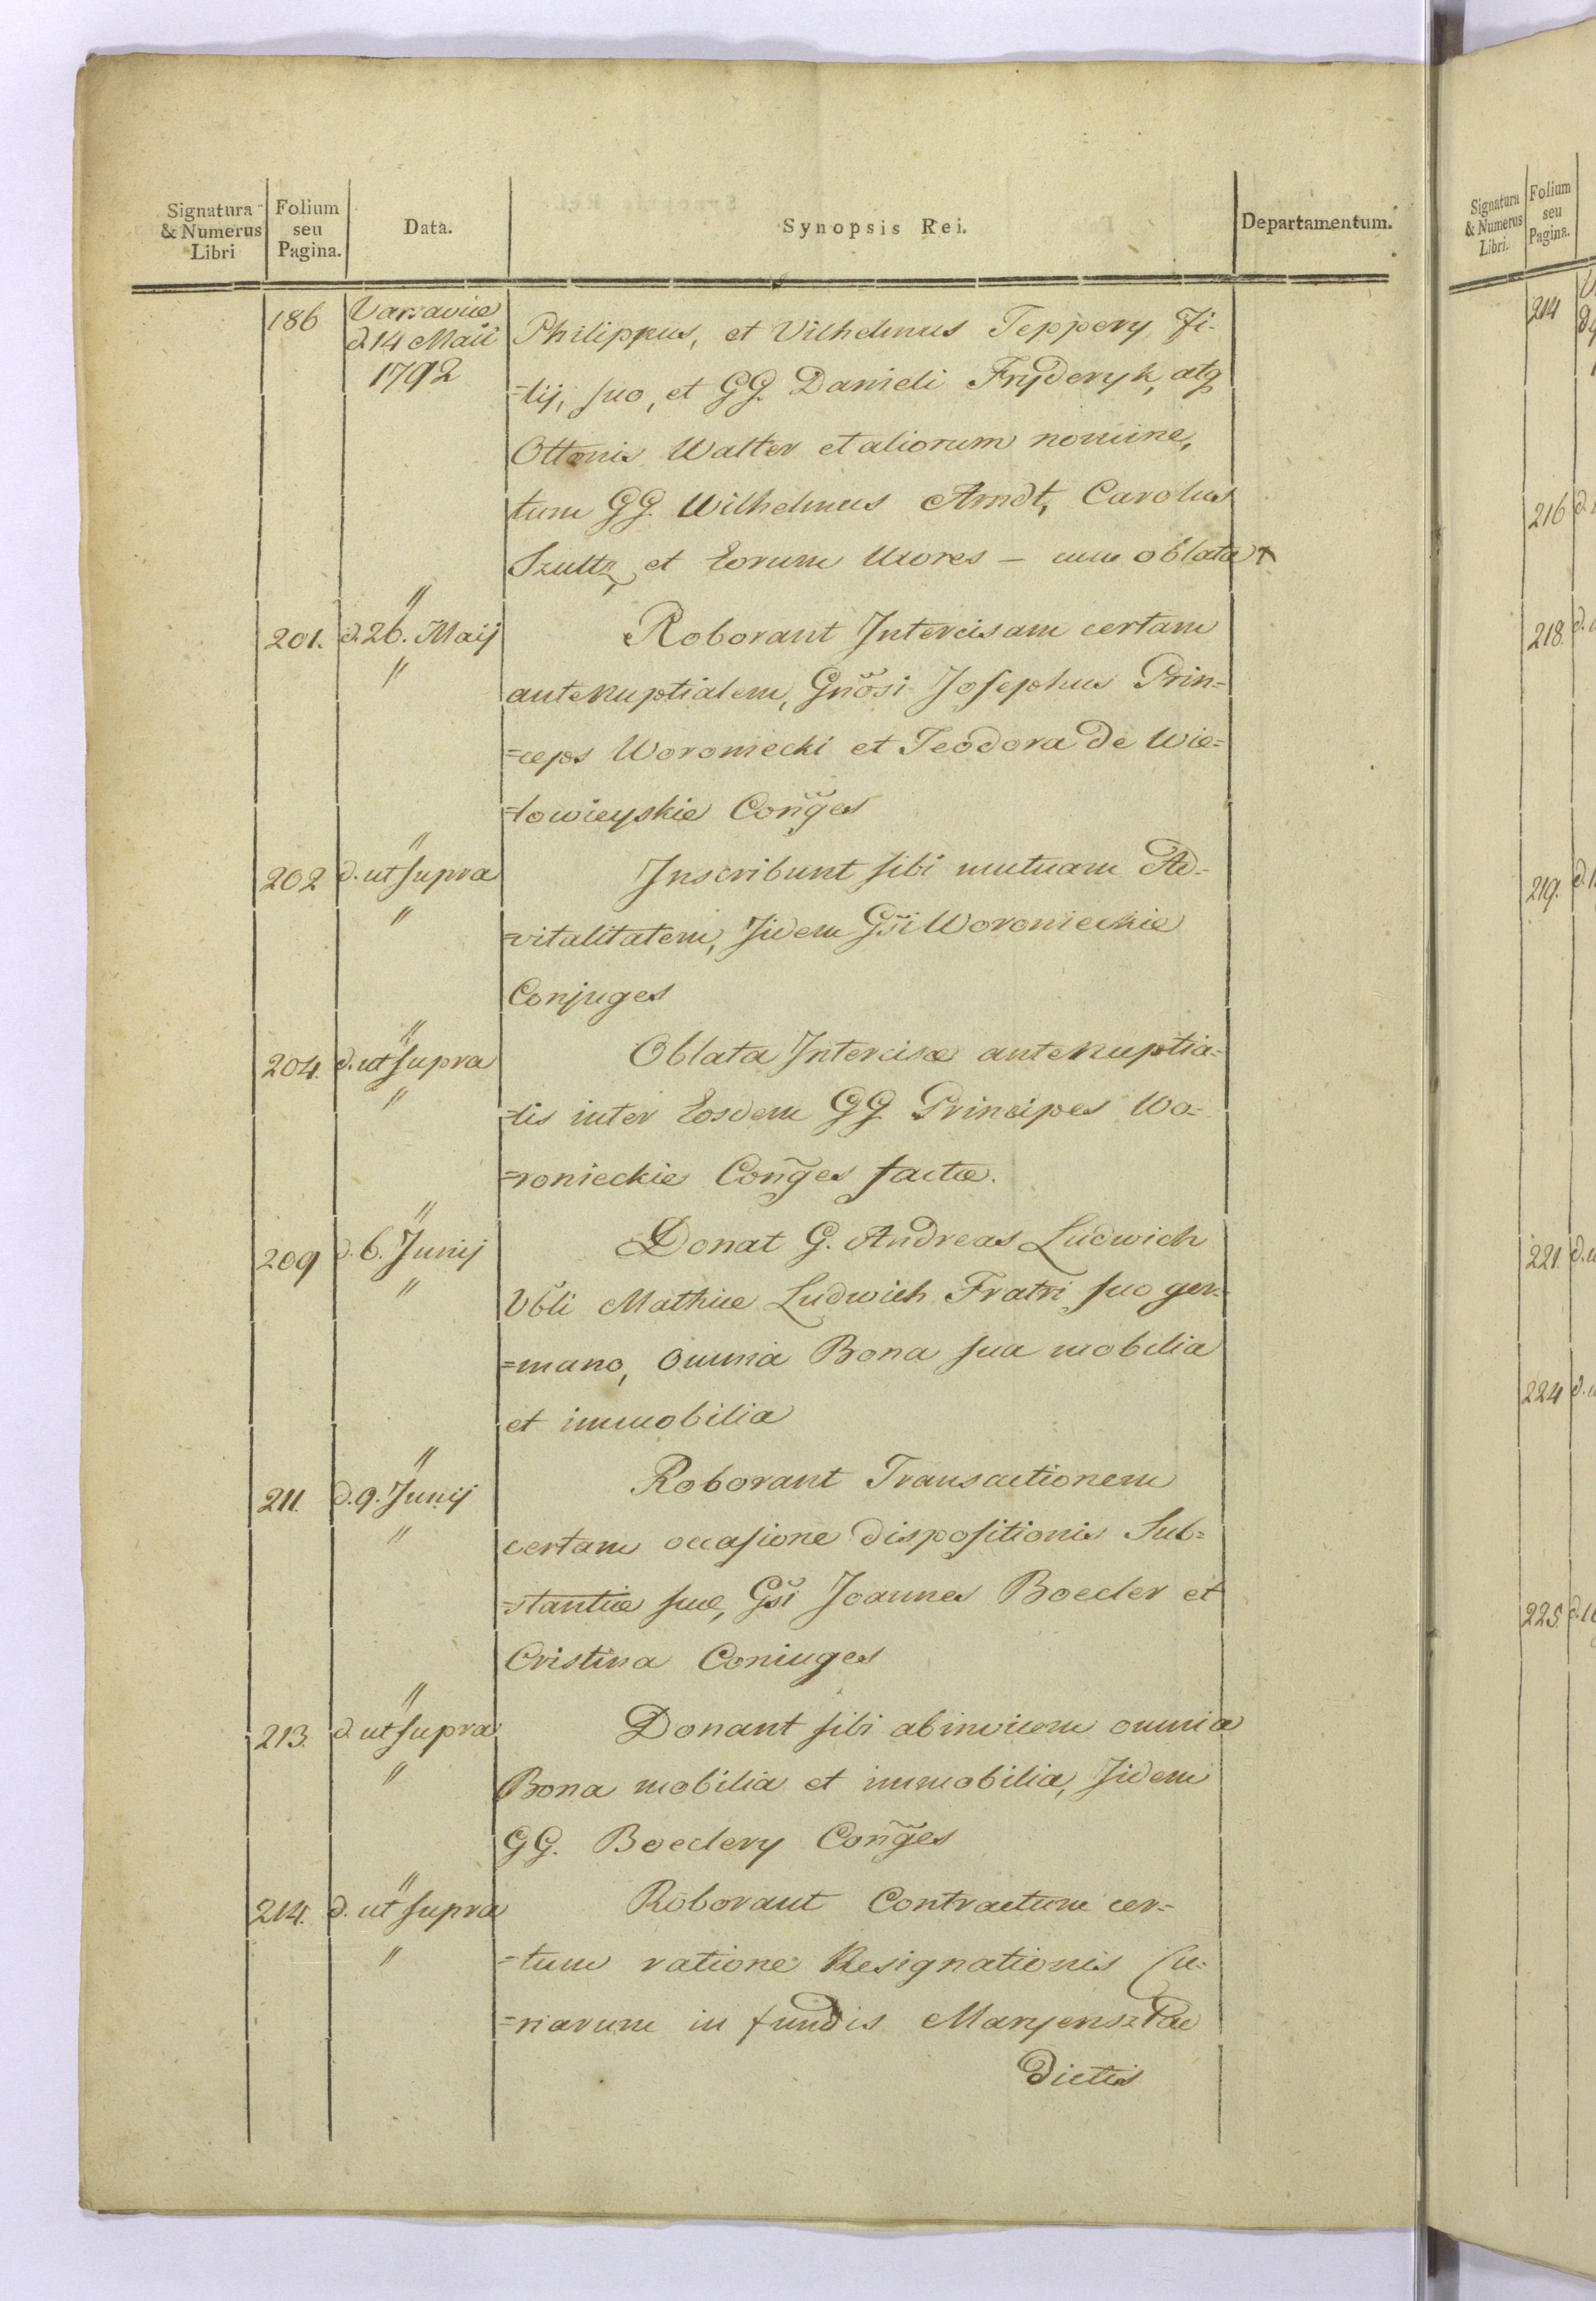 Signatura & Numerus Libri | Folium seu Pagina. | Data. | Synopsis Rei. | Departamentum.
186 Varsaviæ Philippus, et Vilhelmus Teppery Fi-
d 14 Maii
1792 =lij, suo, et GG. Danieli Fryderyk, atq
Ottonis Walter et aliorum nomine,
tum GG. Wilhelmus Arndt, Carolus
Szultz, et Eorum Uxores – cum oblata
"
201. d. 26. Maij Roborant Intercisam certam
" antenuptialem, Gnõsi Josephus Prin=
=ceps Woroniecki et Teodora de Wie=
=lowieyskie Coñges
"
202 d. ut supra Inscribunt sibi mutuam Ad-
" =vitalitatem, Jidem Gsi Woronieckie
Conjuges
"
204. d. ut supra Oblata Intercisæ antenuptia=
" =lis inter Eosdem GG Principes Wo=
=ronieckie Coñges factæ.
"
209 d. 6. Junij Donat G. Andreas Ludwich
" Vbli Mathiæ Ludwich Fratri suo ger=
=mano, omnia Bona sua mobilia
et immobilia
"
211. d. 9. Junij Roborant Transactionem
" certam occasione dispositionis Sub=
=stantiæ suæ, Gsi Joannes Boecler et
Cristina Coniuges
"
213. d. ut supra Donant sibi abinvicem omnia
" Bona mobilia et immobilia, Jidem
GG. Boeclery Coñges
"
214. d. ut supra Roborant Contractum cer=
" =tum ratione Resignationis Cu=
=riarum in fundis Maryensztad
dictis
Signatura & Numerus Libri. | Folium seu Pagina.
214
216
218.
219.
221.
224
225.